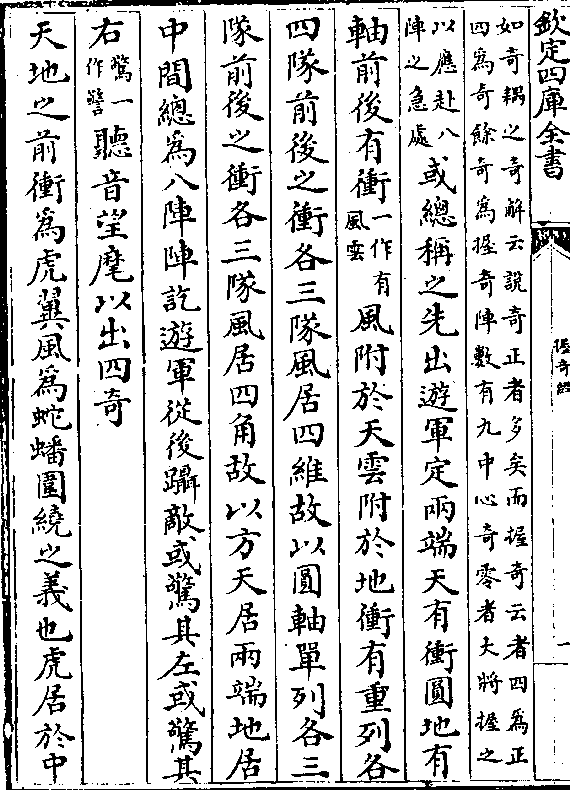 欽定四庫全書
握奇經
一
如奇耦之奇解云說奇正者多矣而握奇云者四為正
四為奇餘奇為握奇陣數有九中心奇零者大將握之
以應赴八
陣之急處或總稱之先出遊軍定兩端天有衝圓地有
軸前後有衝一作有
風雲風附於天雲附於地衝有重列各
四隊前後之衝各三隊風居四維故以圓軸單列各三
隊前後之衝各三隊風居四角故以方天居兩端地居
中間總為八陣陣訖遊軍從後躡敵或驚其左或驚其
右驚一
作警聽音望麾以出四奇
天地之前衝為虎翼風為蛇蟠圍繞之義也虎居於中